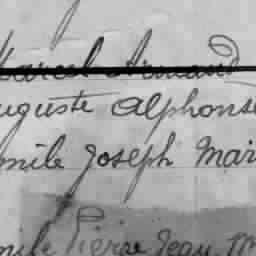 Marcel Armand
Auguste Alphonse
Emile Joseph Mar
Emile Pierre Jean M